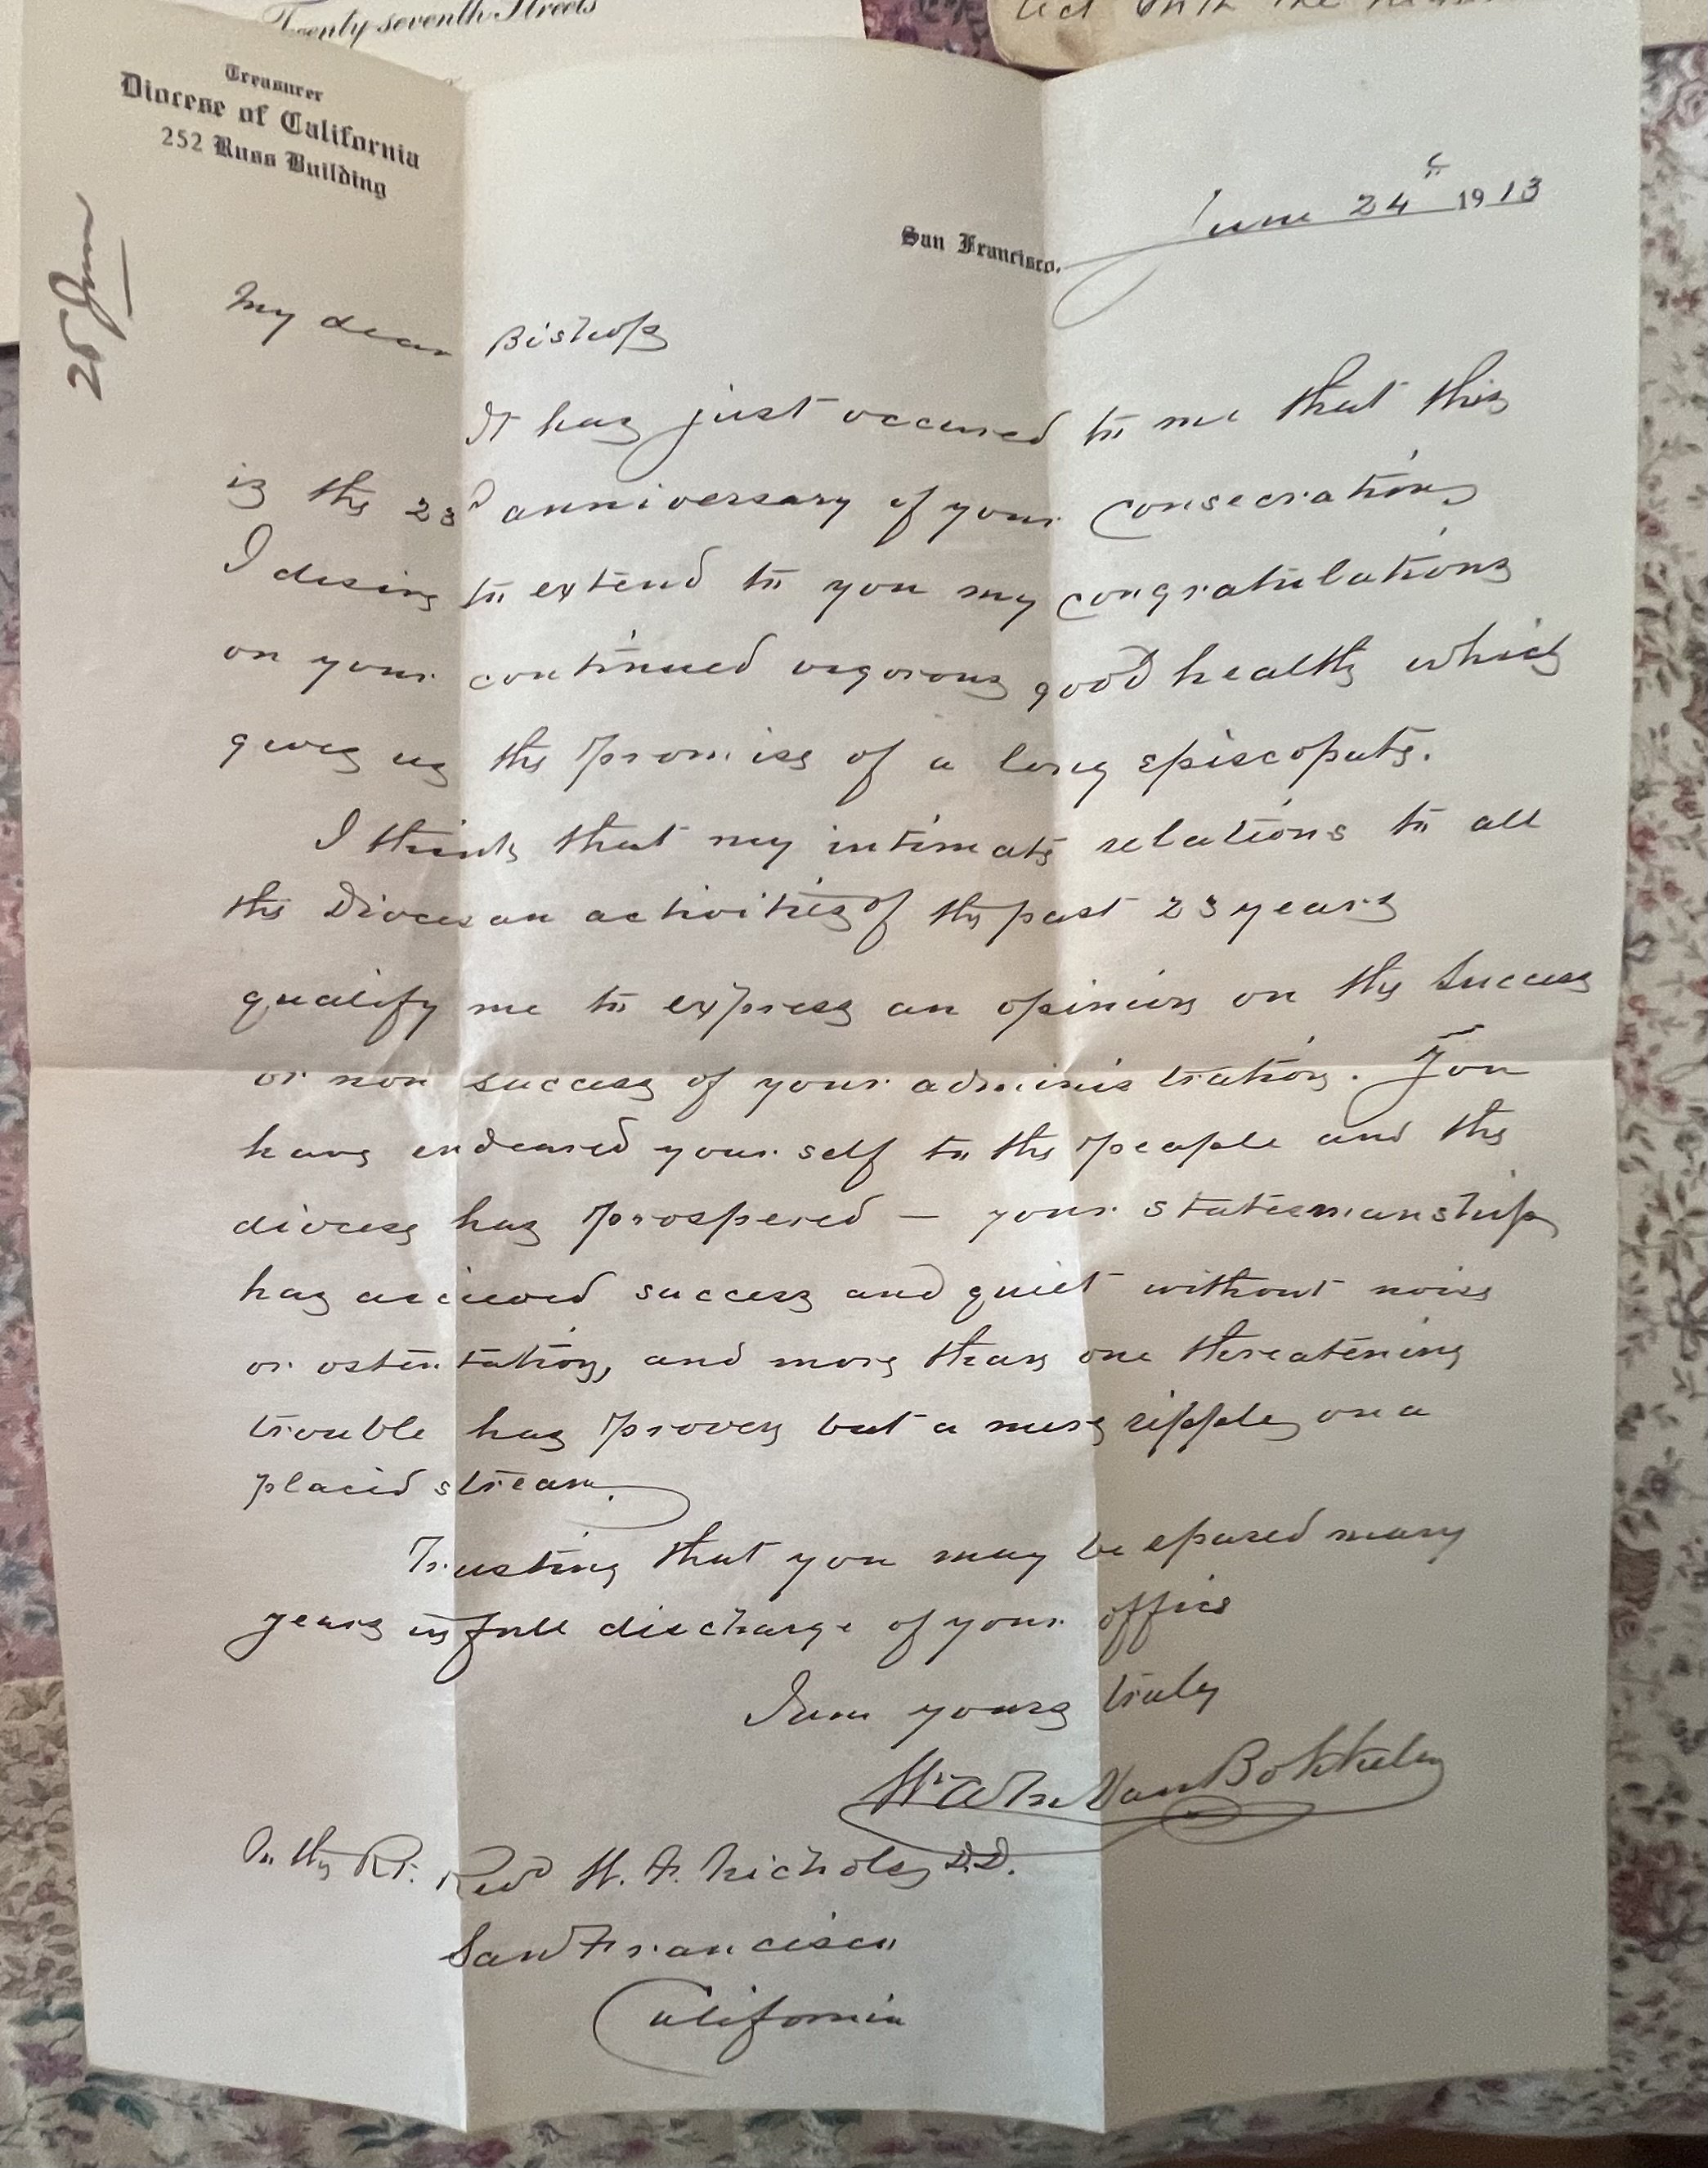 Twenty-seventh Streets
Treasurer
Diocese of California
252 Russ Building
San Francisco, June 24th 1913
25 June
My dear Bishop
It has just occured to me that this
is the 23d anniversary of your consecration
I desire to extend to you my congratulations
on your continued vigorous good health which
gives us the promise of a long episcopate.
I think that my intimate relations to all
the Diocesan activities of the past 23 years
qualify me to express an opinion on the success
or non success of your administration. You
have endeared your self to the people and the
diocese has prospered — your statesmanship
has acieved success and quiet without noise
or ostentation, and more than one threatening
trouble has proven but a mere ripple on a
placid stream.
Trusting that you may be spared many
years in full discharge of your office
I am yours truly
Van Bokkelen
To the Rt. Revd W. F. Nichols D.D.
San Francisco
California